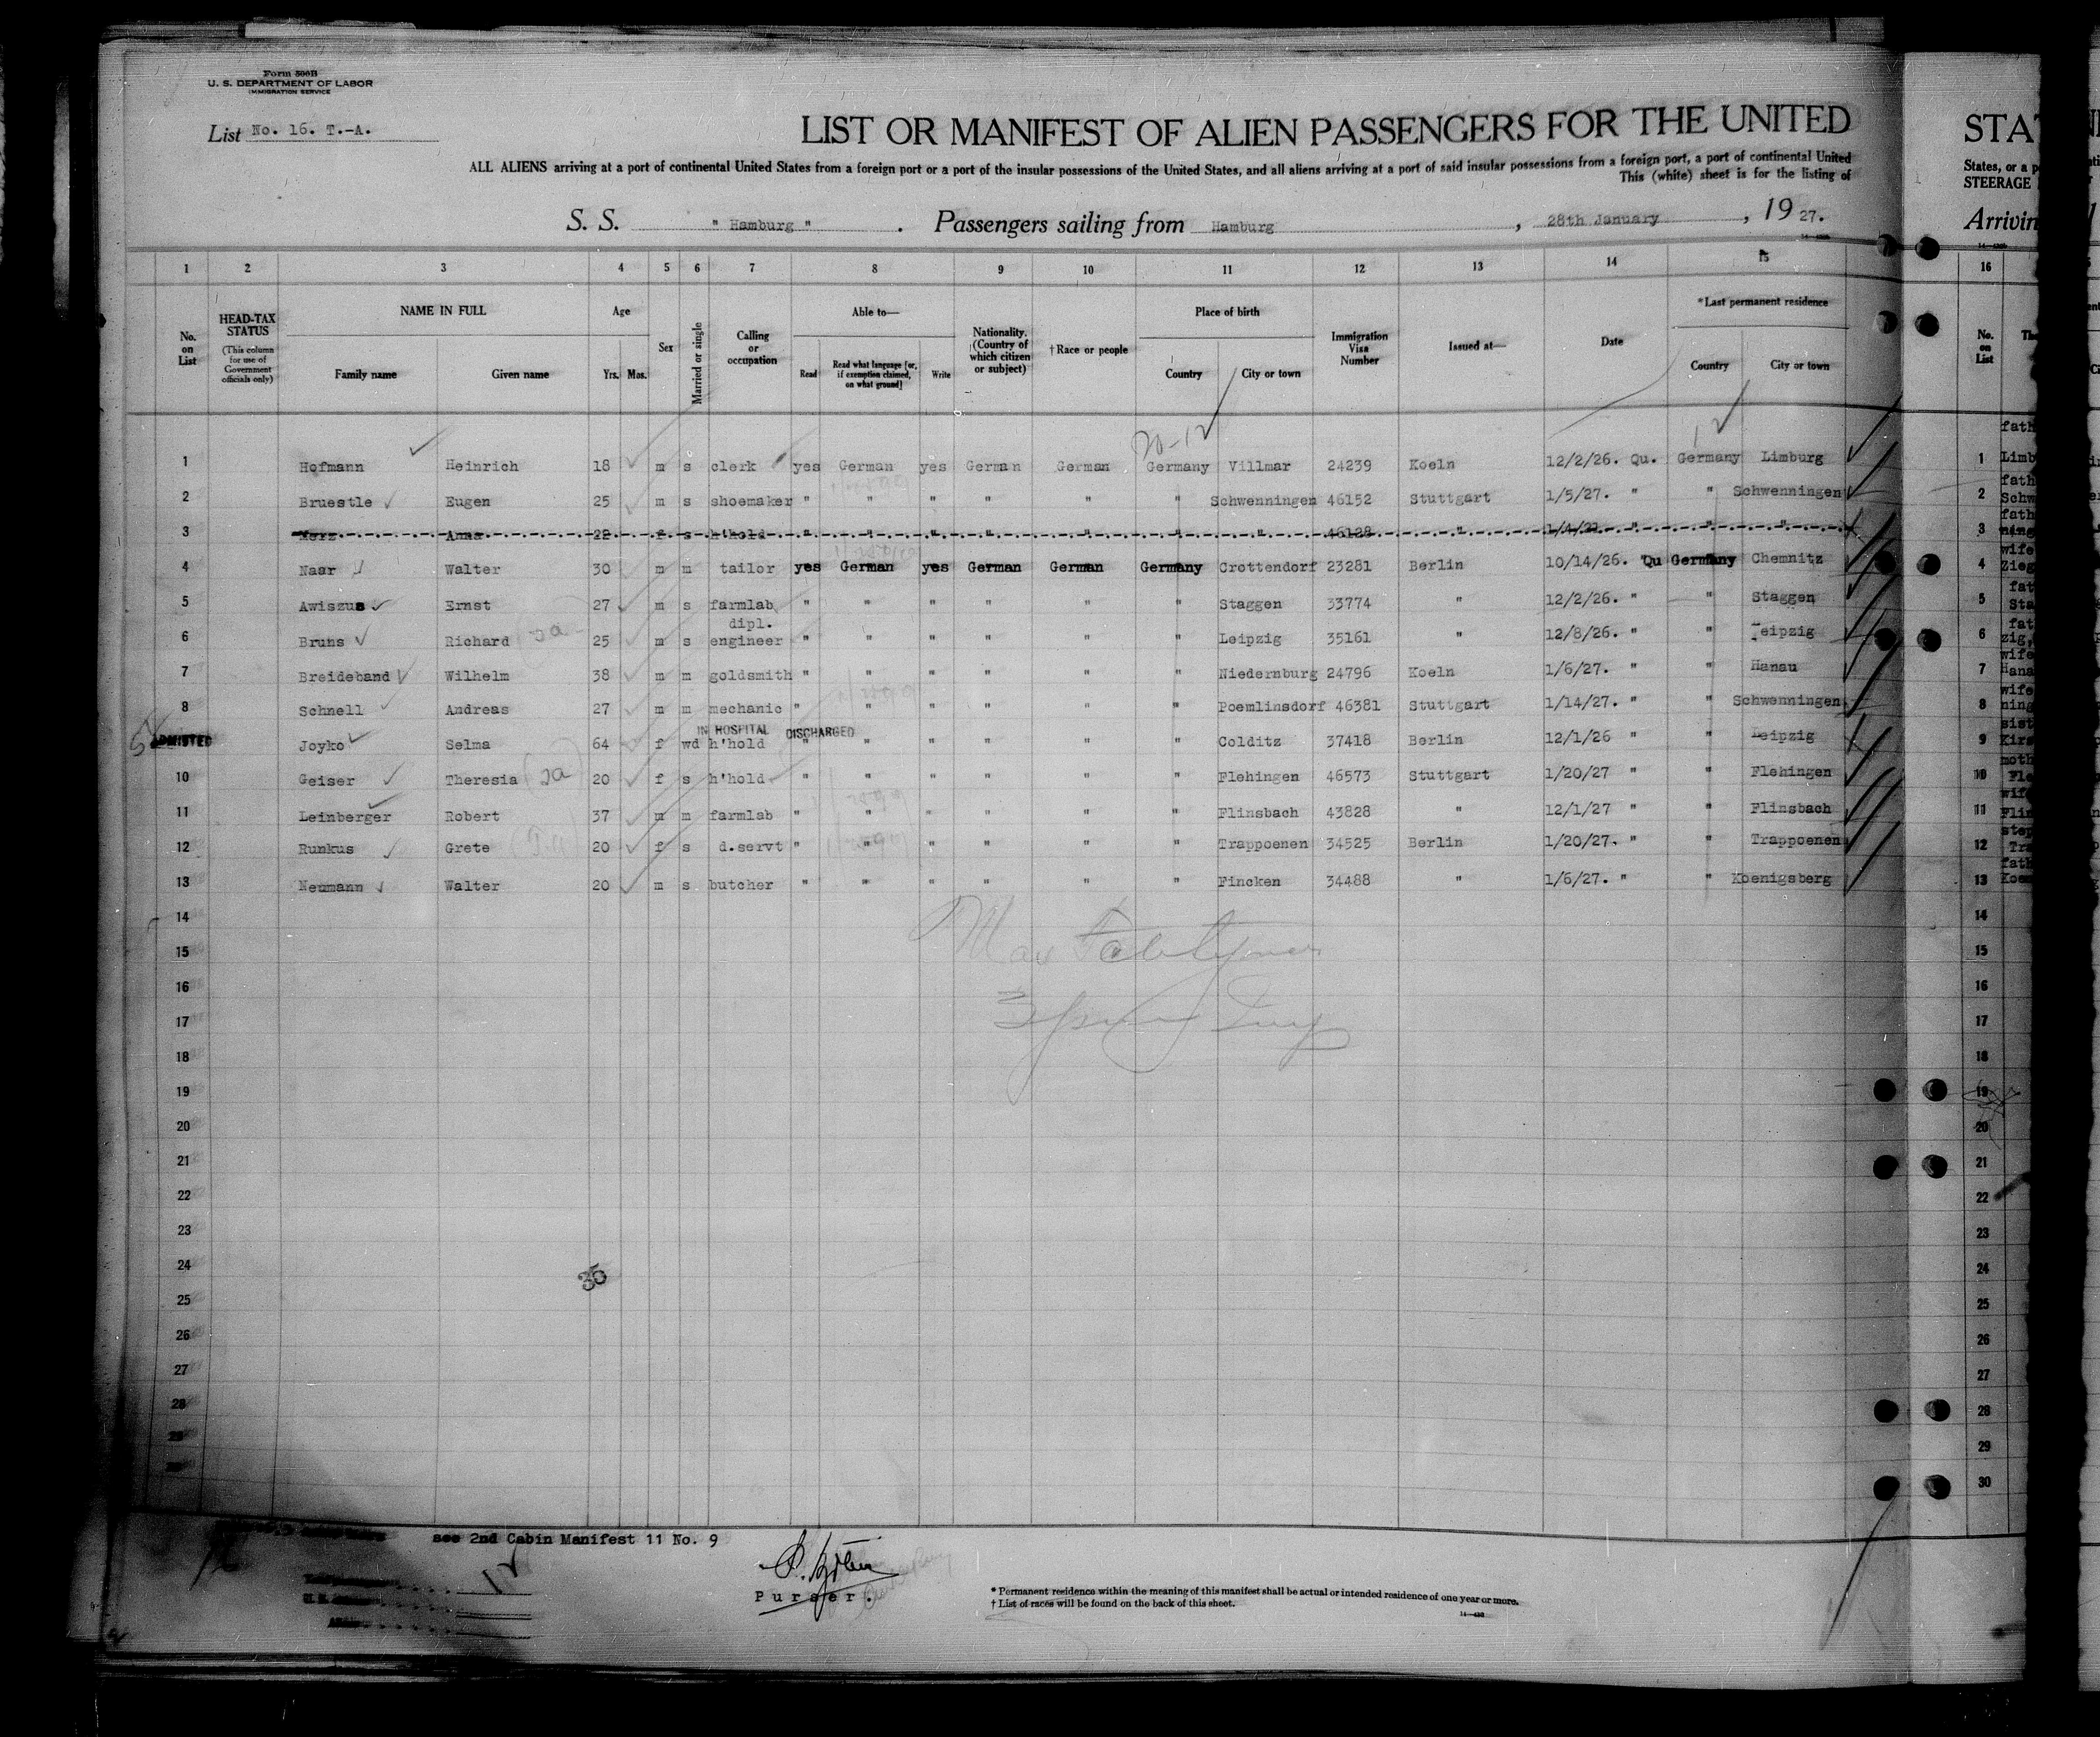 Form 500B
U. S. DEPARTMENT OF LABOR
IMMIGRATION SERVICE
List No. 16. T.-A.
LIST OR MANIFEST OF ALIEN PASSENGERS FOR THE UNITED
ALL ALIENS arriving at a port of continental United States from a foreign port or a port of the insular possessions of the United States, and all aliens arriving at a port of said insular possessions from a foreign port, a port of continental United
This (white) sheet is for the listing of
S. S. " Hamburg " . Passengers sailing from Hamburg , 28th January , 19 27.
1 2 3 4 5 6 7 8 9 10 11 12 13 14 15
No. on List
HEAD-TAX STATUS
(This column for use of Government officials only)
NAME IN FULL
Family name Given name
Age
Yrs. Mos.
Sex
Married or single
Calling or occupation
Able to—
Read
Read what language [or, if exemption claimed, on what ground]
Write
Nationality. (Country of which citizen or subject)
†Race or people
Place of birth
Country City or town
Immigration Visa Number
Issued at—
Date
*Last permanent residence
Country City or town
20-12
1 Hofmann Heinrich 18 m s clerk yes German yes German German Germany Villmar 24239 Koeln 12/2/26. Qu. Germany Limburg
2 Bruestle Eugen 25 m s shoemaker " " " " " " Schwenningen 46152 Stuttgart 1/5/27. " " Schwenningen
3 Merz Anna 22 f s h'hold " " " " " " " 46128 " 1/4/27. " " "
4 Naar Walter 30 m m tailor yes German yes German German Germany Crottendorf 23281 Berlin 10/14/26. Qu Germany Chemnitz
5 Awiszus Ernst 27 m s farmlab " " " " " " Staggen 33774 " 12/2/26. " " Staggen
6 Bruhs Richard 25 m s dipl. engineer " " " " " " Leipzig 35161 " 12/8/26. " " Leipzig
7 Breideband Wilhelm 38 m m goldsmith " " " " " " Niedernburg 24796 Koeln 1/6/27. " " Hanau
8 Schnell Andreas 27 m m mechanic " " " " " " Poemlinsdorf 46381 Stuttgart 1/14/27. " " Schwenningen
IN HOSPITAL DISCHARGED
ADMITTED Joyko Selma 64 f wd h'hold " " " " " " Colditz 37418 Berlin 12/1/26 " " Leipzig
10 Geiser Theresia 20 f s h'hold " " " " " " Flehingen 46573 Stuttgart 1/20/27 " " Flehingen
11 Leinberger Robert 37 m m farmlab " " " " " " Flinsbach 43828 " 12/1/27 " " Flinsbach
12 Runkus Grete 20 f s d.servt " " " " " " Trappoenen 34525 Berlin 1/20/27. " " Trappoenen
13 Neumann Walter 20 m s butcher " " " " " " Fincken 34488 " 1/6/27. " " Koenigsberg
14
15
16
17
18
19
20
21
22
23
24
25
26
27
28
29
30
35
see 2nd Cabin Manifest 11 No. 9
12
Purser.
* Permanent residence within the meaning of this manifest shall be actual or intended residence of one year or more.
† List of races will be found on the back of this sheet.
STAT
States, or a p
STEERAGE
Arrivin
16
No. on List
1 Limb
fath
2 Schw
fath
3 ning
wife
4 Zieg
fat
5 Sta
fat
6 zig,
wife
7 Hana
wife
8 ning
sist
9 Kirs
moth
10 Fle
wife
11 Flin
step
12 Tra
fath
13 Koen
14
15
16
17
18
19
20
21
22
23
24
25
26
27
28
29
30